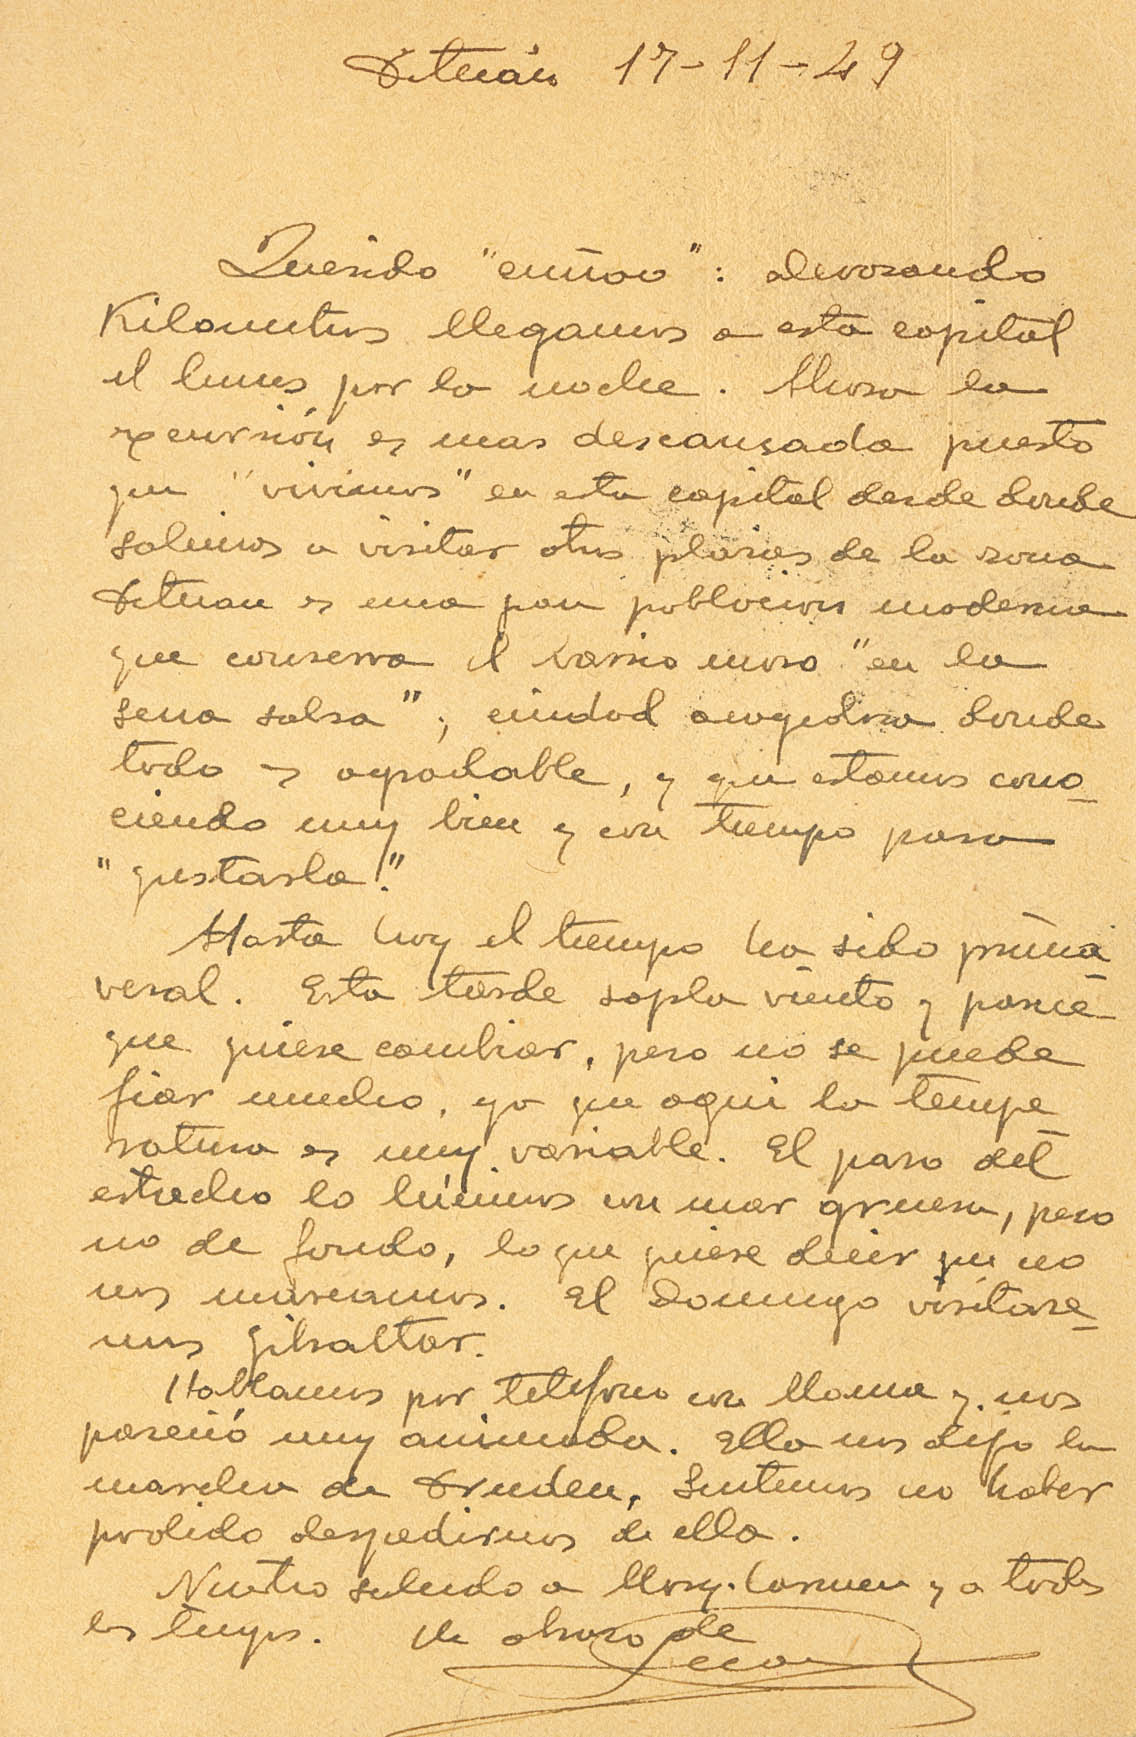 Tetuán 17-11-49
Querido "cuñao": devorando
Kilometros llegamos a esta capital
el lunes por la noche. Ahora la
excursión es mas descansada puesto
que "vivimos" en esta capital desde donde
salimos a visitar otras plazas de la zona
Tetuan es una gran poblacion moderna
que conserva el barrio moro "en la
sena salsa", ciudad acogedora donde
todo es agradable, y que estamos cono-
ciendo muy bien y con tiempo para
"gustarla".
Hasta hoy el tiempo ha sido prima-
veral. Esta tarde sopla viento y parece
que quiere cambiar, pero no se puede
fiar mucho, ya que aqui la tempe-
ratura es muy variable. El paso del
estrecho lo hicimos con mar gruesa, pero
no de fondo, lo que quiere decir que no
nos mareamos. El Domingo visitare-
mos Gibraltar.
Hablamos por telefono con Mama y nos
pareció muy animada. Ella nos dijo la
marcha de Truden. Sentimos no haber
podido despedirnos de ella.
Nuestro saludo a Mary-Carmen y a todos
los tuyos. Un abrazo de